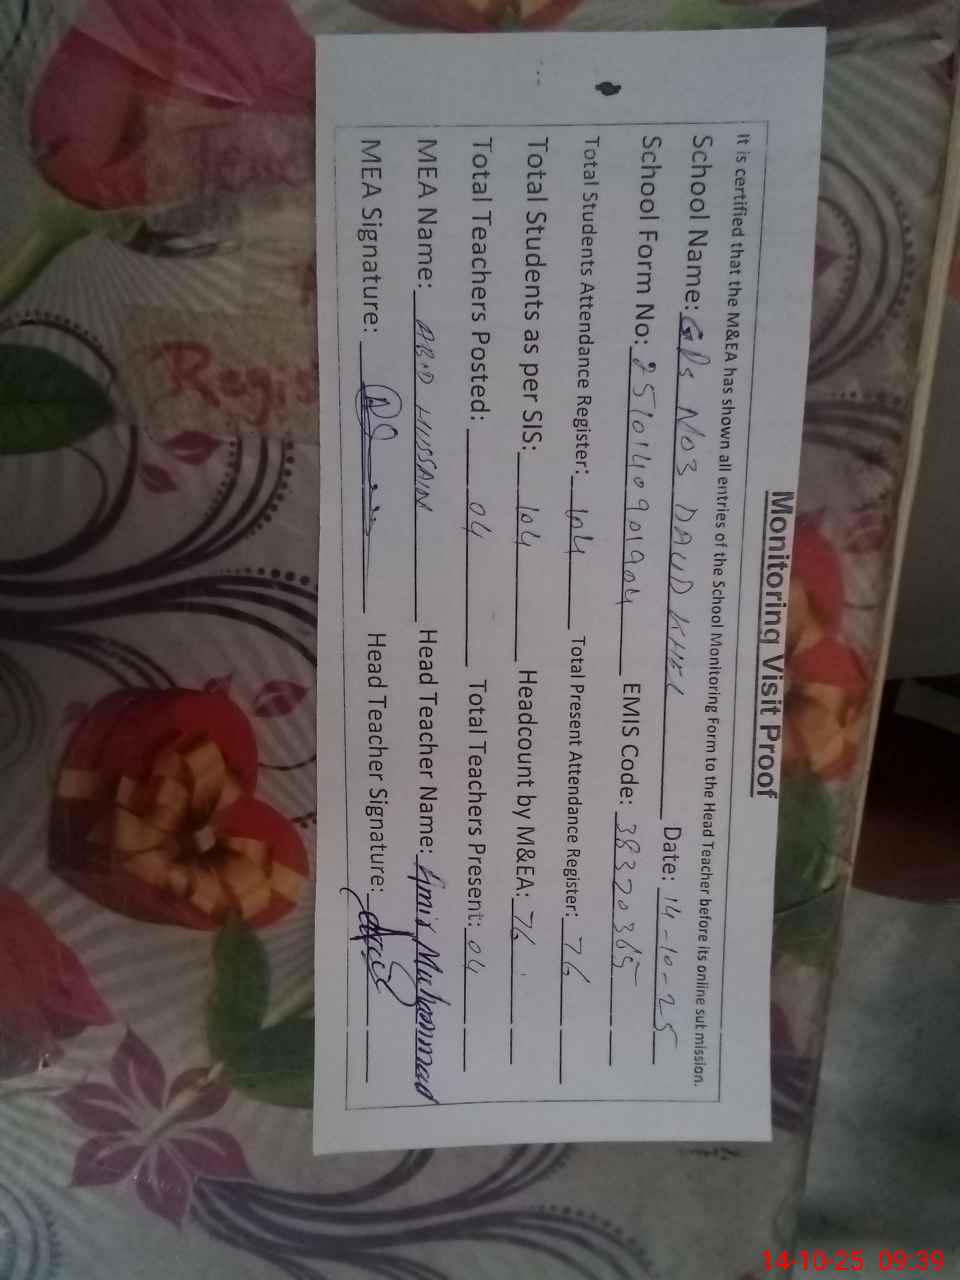 Monitoring Visit Proof
It is certified that the M&EA has shown all entries of the School Monitoring Form to the Head Teacher before its online submission.
School Name: GPS NO3 DAUD KHEL Date: 14-10-25
School Form No: 2510140901904 EMIS Code: 38320365
Total Students Attendance Register: 104 Total Present Attendance Register: 76
Total Students as per SIS: 104 Headcount by M&EA: 76
Total Teachers Posted: 04 Total Teachers Present: 04
MEA Name: ABID HUSSAIN Head Teacher Name: Amir Muhammad
MEA Signature: Head Teacher Signature:
Regis
14-10-25 09:39